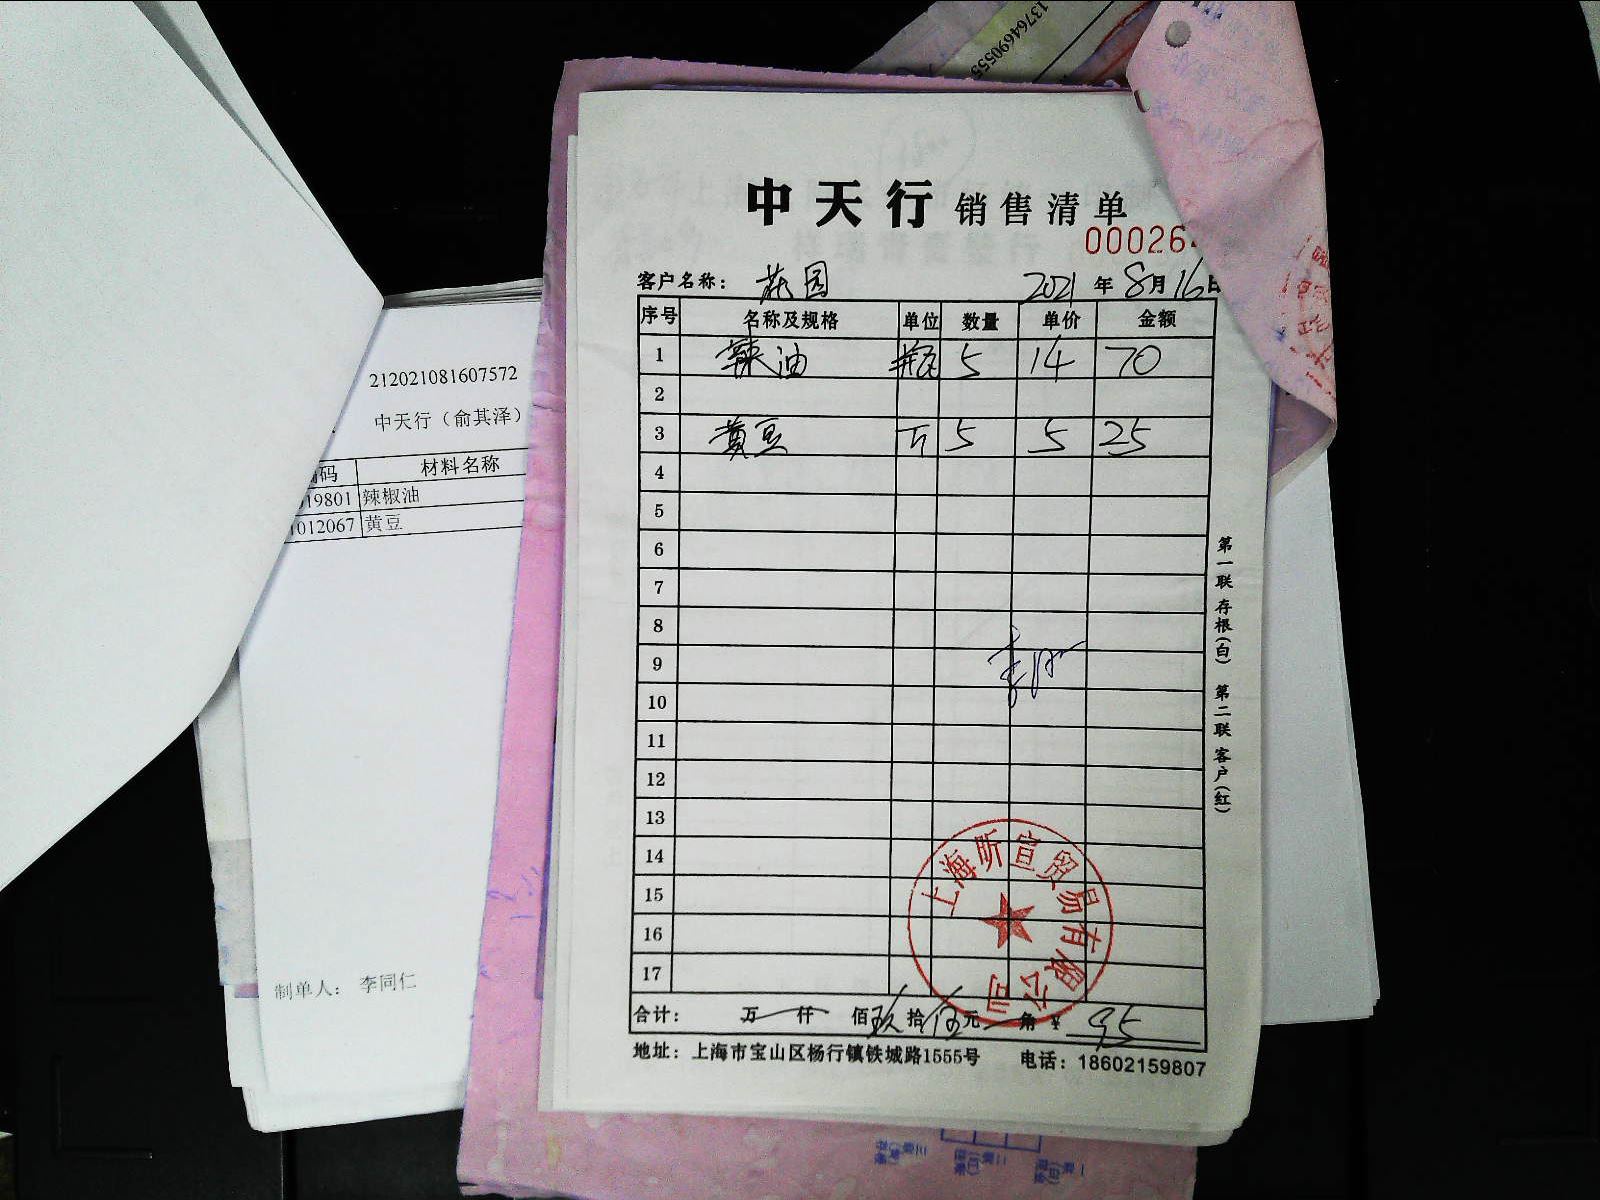 13764690555
中天行 销售清单
00026
客户名称: 花园 2021年8月16日
序号 名称及规格 单位 数量 单价 金额
1 辣油 瓶 5 14 70
2
3 黄豆 斤 5 5 25
4
5
6
7
8
9
10
11
12
13
14
15
16
17
上海昕宣贸易有限公司
合计: 万 仟 佰玖拾伍元 角 ¥ 95
地址: 上海市宝山区杨行镇铁城路1555号 电话: 18602159807
第一联 存根(白) 第二联 客户(红)
212021081607572
中天行（俞其泽）
码 材料名称
19801 辣椒油
1012067 黄豆
制单人: 李同仁